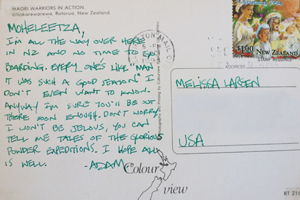 MAORI WARRIORS IN ACTION.
Whakarewarewa, Rotorua, New Zealand.
MOHELEETZA,
I'M ALL THE WAY OVER HERE
IN NZ AND NO TIME TO GO
BOARDING. EVERY ONE'S LIKE "MAN
IT WAS SUCH A GOOD SEASON" I
DON'T EVEN WANT TO KNOW.
ANYWAY I'M SURE YOU'LL BE OUT
THERE SOON ENOUGH. DON'T WORRY
I WON'T BE JELOUS, YOU CAN
TELL ME TALES OF THE GLORIOUS
POWDER EXPEDITIONS. I HOPE ALL
IS WELL. -ADAM
Colour
view
$1.00
NEW ZEALAND
MELISSA LARSEN
USA